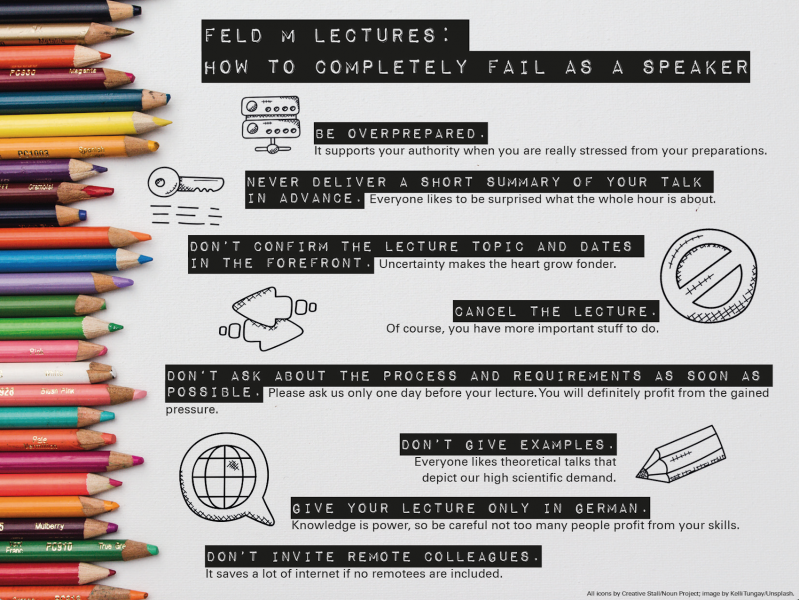 FELD M LECTURES:
HOW TO COMPLETELY FAIL AS A SPEAKER
BE OVERPREPARED.
It supports your authority when you are really stressed from your preparations.
NEVER DELIVER A SHORT SUMMARY OF YOUR TALK
IN ADVANCE. Everyone likes to be surprised what the whole hour is about.
DON'T CONFIRM THE LECTURE TOPIC AND DATES
IN THE FOREFRONT. Uncertainty makes the heart grow fonder.
CANCEL THE LECTURE.
Of course, you have more important stuff to do.
DON'T ASK ABOUT THE PROCESS AND REQUIREMENTS AS SOON AS
POSSIBLE. Please ask us only one day before your lecture. You will definitely profit from the gained
pressure.
DON'T GIVE EXAMPLES.
Everyone likes theoretical talks that
depict our high scientific demand.
GIVE YOUR LECTURE ONLY IN GERMAN.
Knowledge is power, so be careful not too many people profit from your skills.
DON'T INVITE REMOTE COLLEAGUES.
It saves a lot of internet if no remotees are included.
All icons by Creative Stall/Noun Project; image by KelliTungay/Unsplash.
PC930 Magenta
PC1003 Spanish
Mulberry
PC910 True Gre